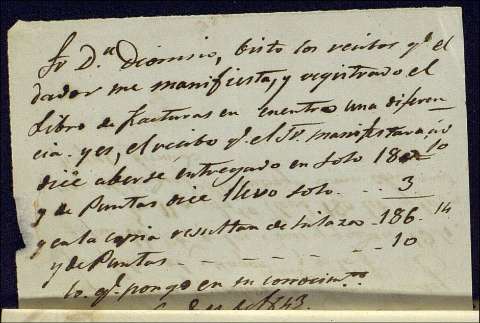 Sr Dn Dionisio, bisto los recibos q.e el
dador me manifiesta, y registrado el
Libro de facturas en cuentro una diferen
cia. y es, el recibo q.e el Sr. manifestara
dice aberse entregado en solo 182 10
y de Puntas dice llevo solo. .. 3
y en la copia resultan de hilaza 186. 14
y de Puntas - - - - - 10
lo q.e pongo en su conocim.to
1843.